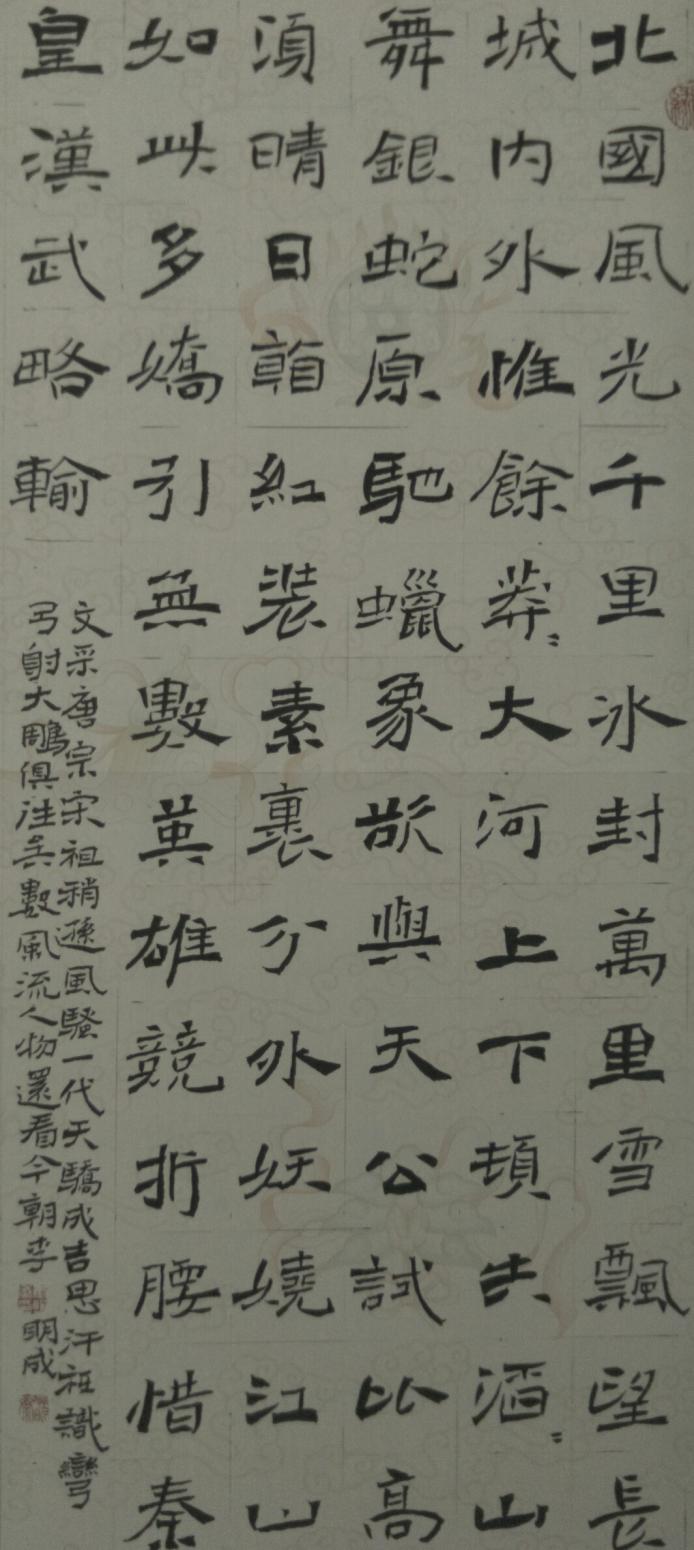 北國風光千里冰封萬里雪飄望長
城内外惟餘莽〻大河上下頓失滔〻山
舞銀蛇原馳蠟象欲與天公試比高
須晴日看紅装素裹分外妖嬈江山
如此多嬌引無數英雄競折腰惜秦
皇漢武略輸
文采唐宗宋祖稍遜風騷一代天驕成吉思汗祗識彎
弓射大雕俱往矣數風流人物還看今朝李明成